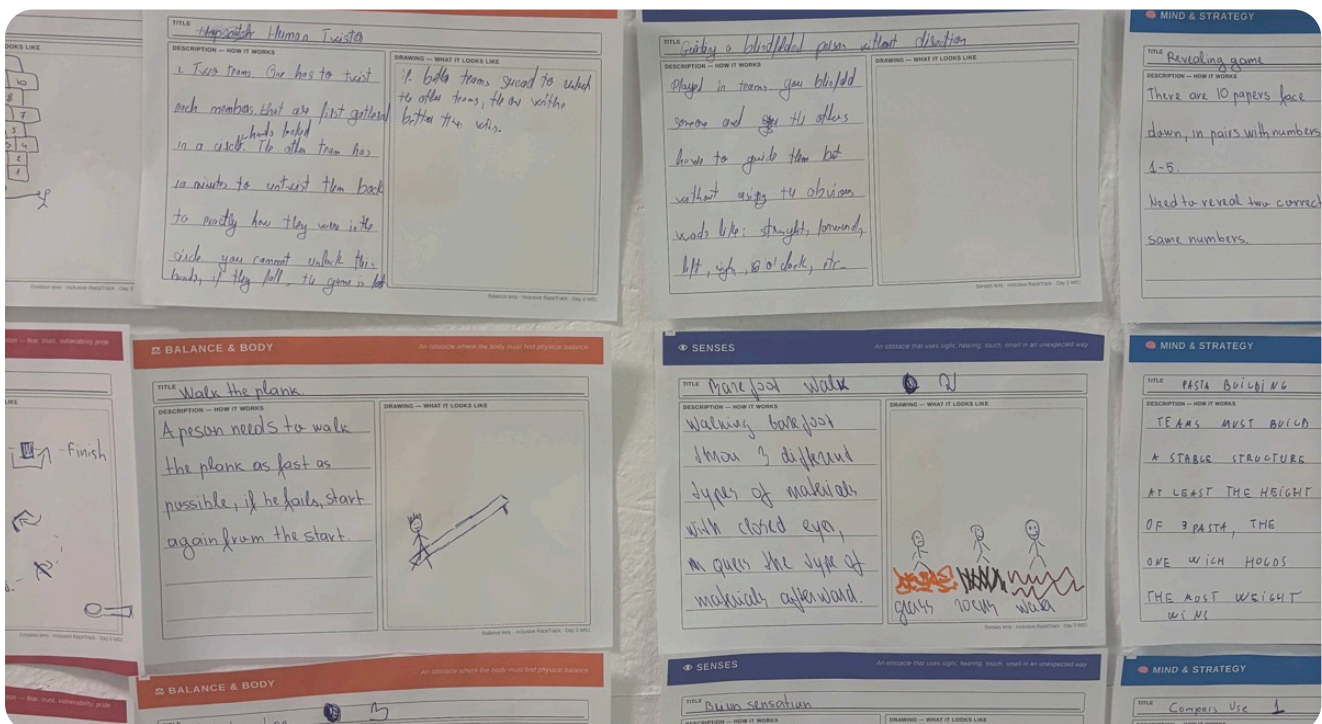 OOKS LIKE
10
8
7
5
4
2
1
Emotion lens · Inclusive RaceTrack · Day 3 WS1
TITLE Human Twister
DESCRIPTION — HOW IT WORKS
Two teams. One has to twist
each members, that are first gathered
hands locked
in a circle. The other team has
10 minutes to untwist them back
to exactly how they were in the
circle. you cannot unlock the
hands, if they fall, the game is lost
DRAWING — WHAT IT LOOKS LIKE
if both teams succed to untwist
the other teams, the one with the
better time wins.
Balance lens · Inclusive RaceTrack · Day 3 WS1
TITLE Guiding a blindfolded person without direction
DESCRIPTION — HOW IT WORKS
Played in teams you blinfold
someone and the others
have to guide them but
without using the obvious
words like: straight, forward,
left, righ, 8 o'clock, etc.
DRAWING — WHAT IT LOOKS LIKE
Senses lens · Inclusive RaceTrack · Day 3 WS1
MIND & STRATEGY
TITLE Revealing game
DESCRIPTION — HOW IT WORKS
There are 10 papers face
down, in pairs with numbers
1-5.
Need to reveal two correct
same numbers.
fear, trust, vulnerability, pride
LIKE
-Finish
Emotion lens · Inclusive RaceTrack · Day 3 WS1
BALANCE & BODY
An obstacle where the body must find physical balance
TITLE Walk the plank.
DESCRIPTION — HOW IT WORKS
A peson needs to walk
the plank as fast as
possible, if he fails, start
again from the start.
DRAWING — WHAT IT LOOKS LIKE
Balance lens · Inclusive RaceTrack · Day 3 WS1
SENSES
An obstacle that uses sight, hearing, touch, smell in an unexpected way
TITLE Barefoot walk 2
DESCRIPTION — HOW IT WORKS
Walking barefoot
3 different
types of materials
with closed eyes,
guess the type of
materials afterward.
DRAWING — WHAT IT LOOKS LIKE
grass rocks water
Senses lens · Inclusive RaceTrack · Day 3 WS1
MIND & STRATEGY
TITLE PASTA BUILDING
DESCRIPTION — HOW IT WORKS
TEAMS MUST BUILD
A STABLE STRUCTURE
AT LEAST THE HEIGHT
OF 3 PASTA, THE
ONE WICH HOLDS
THE MOST WEIGHT
WINS
fear, trust, vulnerability, pride
BALANCE & BODY
An obstacle where the body must find physical balance
TITLE 3
SENSES
An obstacle that uses sight, hearing, touch, smell in an unexpected way
TITLE sensation
DESCRIPTION — HOW IT WORKS
DRAWING — WHAT IT LOOKS LIKE
MIND & STRATEGY
TITLE Compass Use 1
DESCRIPTION — HOW IT WORKS